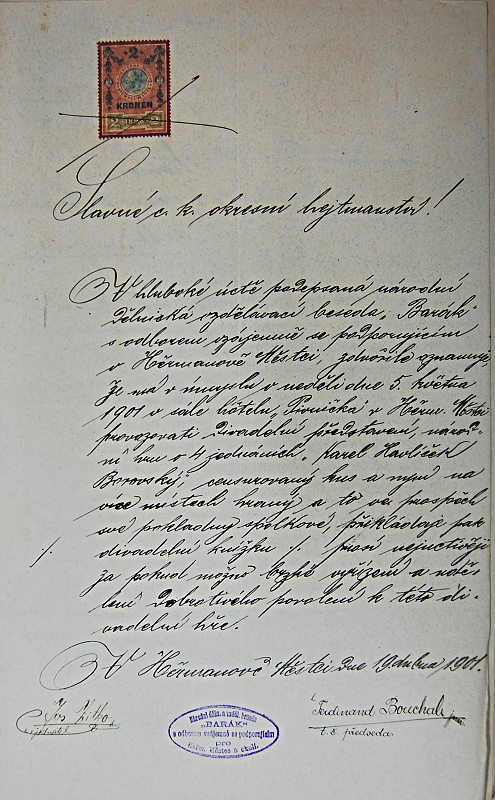 2
KRONEN
2 1898 2
Slavné c. k. okresní hejtmanství!
V hluboké úctě podepsaná národní
dělnická vzdělávací beseda „Barák"
s odborem vzájemně se podporujícím
v Heřmanově Městci, zdvořile oznamuje,
že má v úmyslu v neděli dne 5. května
1901 v sále hôtelu „Pivnička" v Heřm. Městci
provozovati divadelní představení, národ-
ní hru o 4 jednáních, „Karel Havlíček
Borovský", censurovaný kus a nyní na
více místech hraný a to ve prospěch
své pokladny spolkové, přikládaje pak
./. divadelní knížku ./. prosí nejuctivěji
za pokud možno brzké vyřízení a udě-
lení dobrotivého povolení k této di-
vadelní hře.
V Heřmanově Městci dne 19. dubna 1901.
Jos.
jednatel
Národní děln. a vzděl. beseda
„BARÁK"
s odborem vzájemně se podporujícím
pro
Heřm. Městec a okolí.
Ferdinand Bouchal jun.
t. č. předseda.